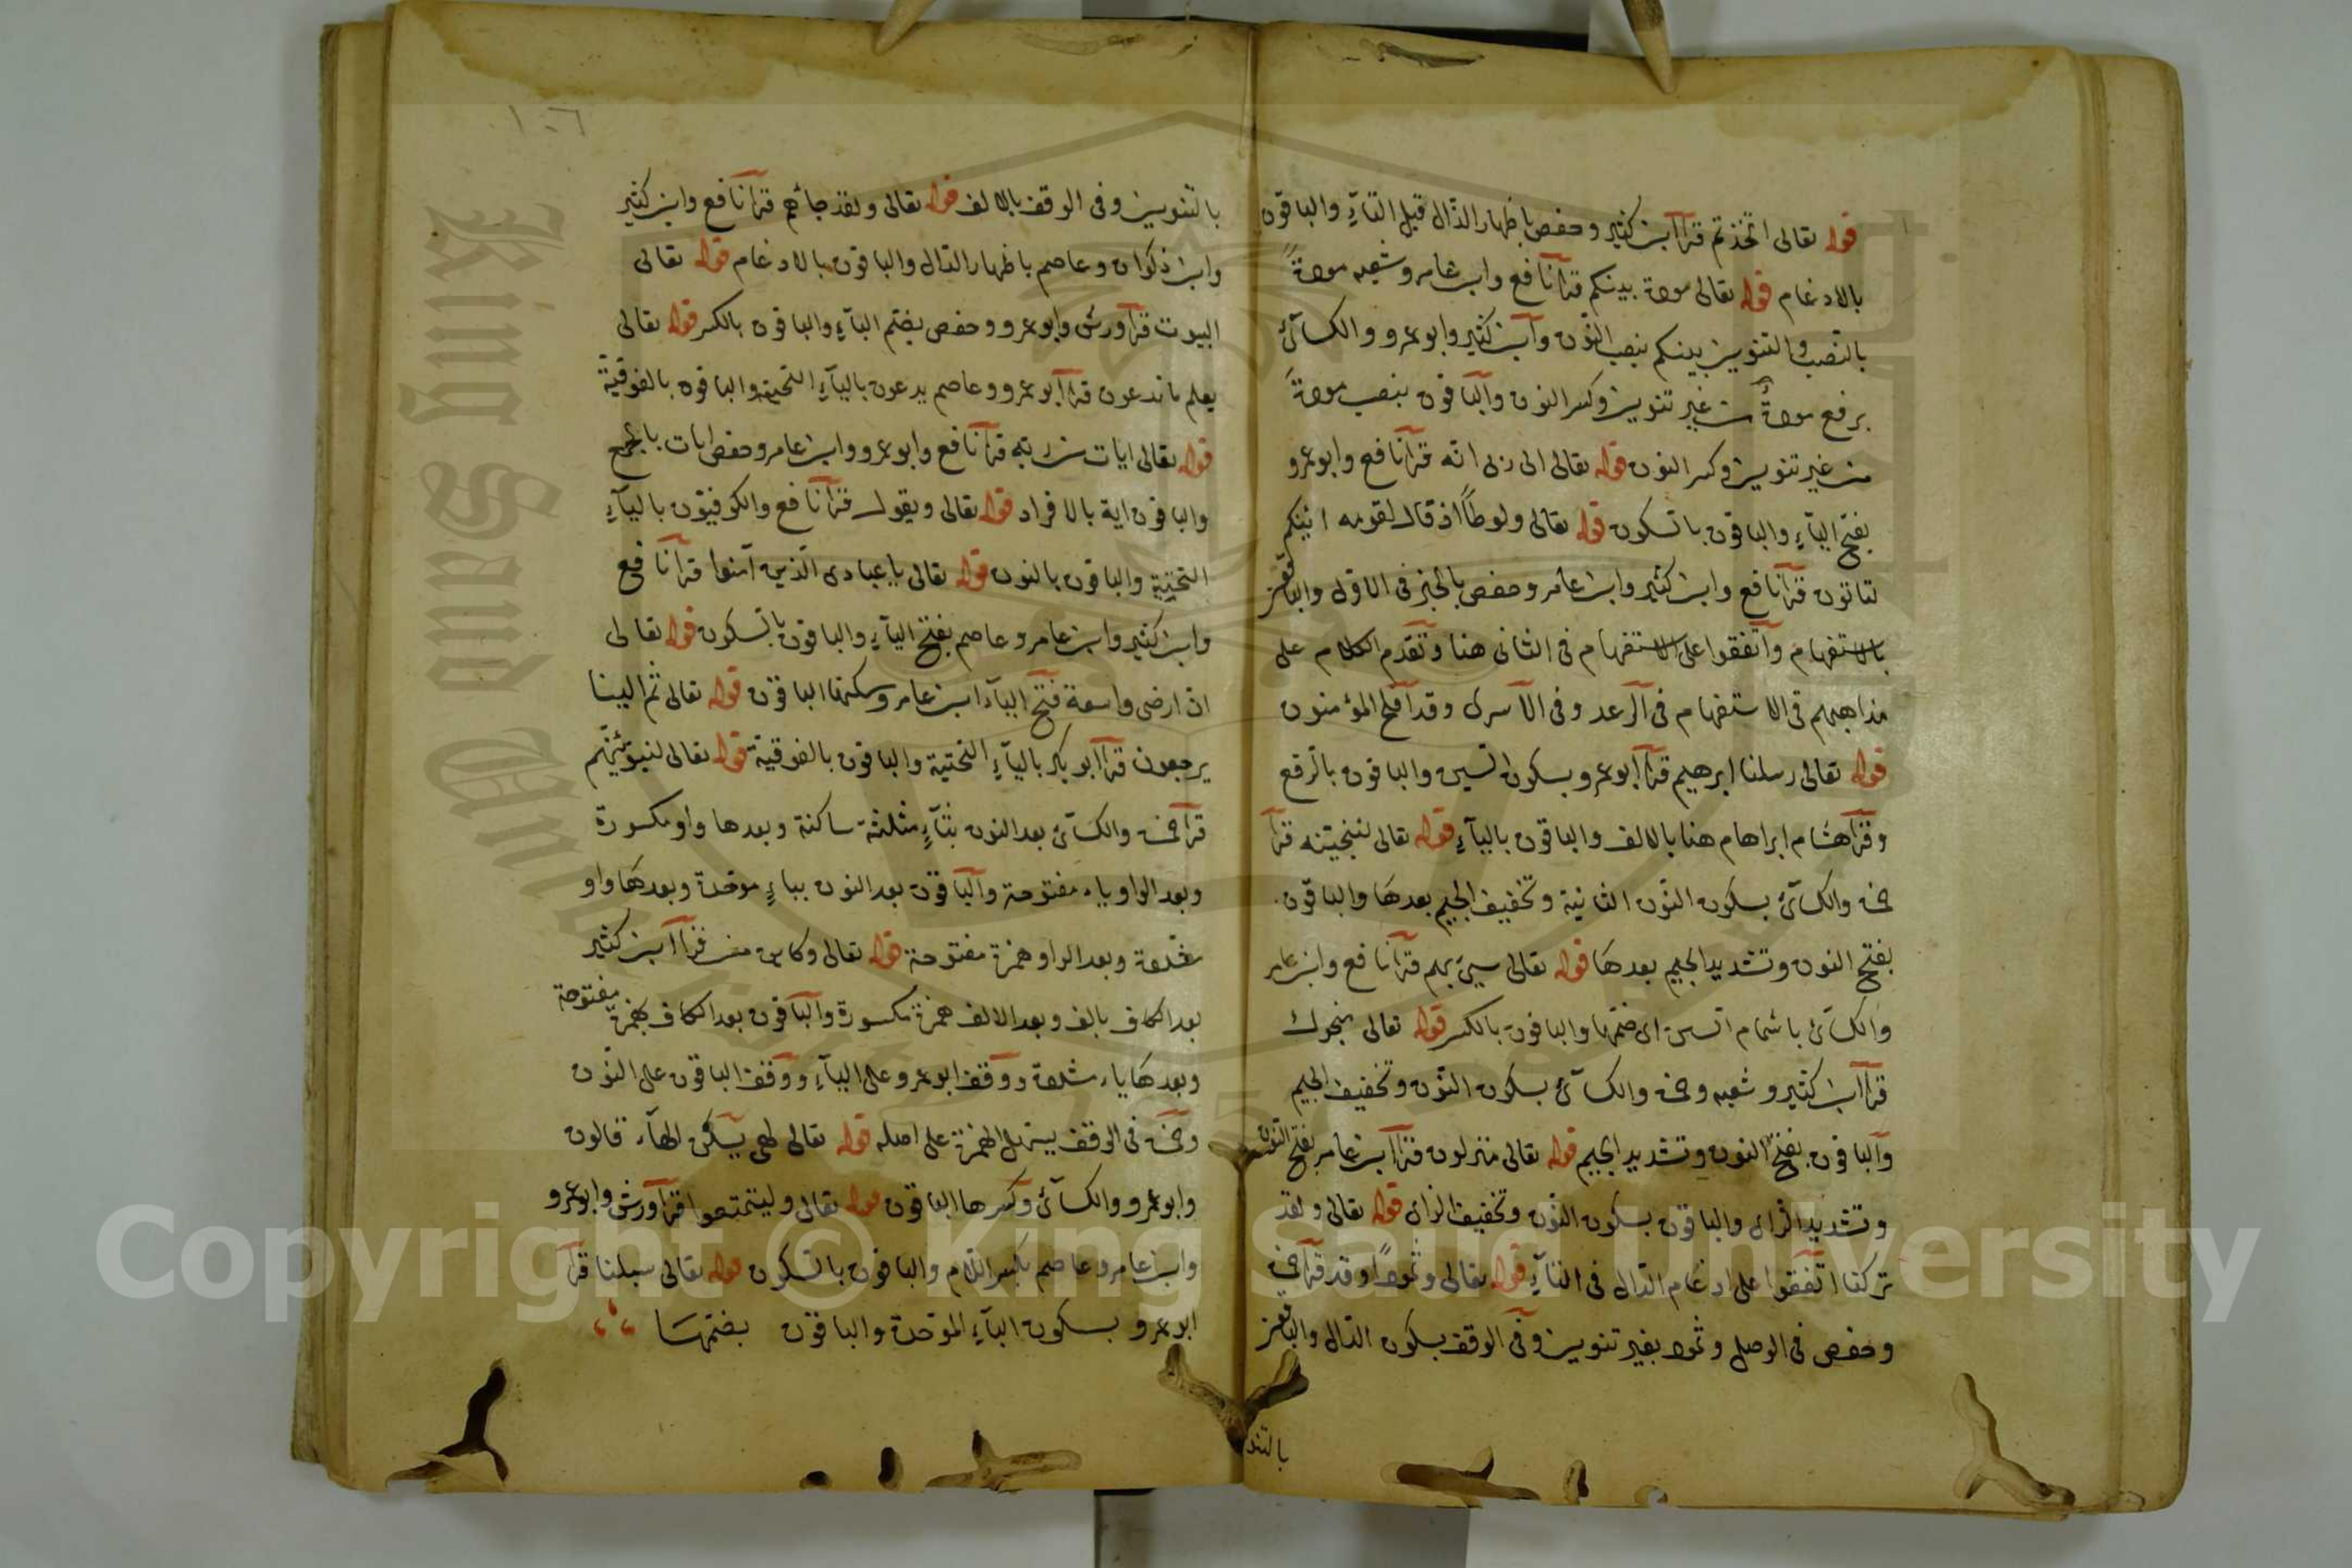 قوله تعالى اتخذتم قرأ ابن كثير وحفص باظهار الذال قبل التآء والباقون
بالادغام قوله تعالى مودة بينكم قرأ نافع وابن عامر وشعبه مودةً
بالنصب والتنوين بينكم بنصب النون وابن كثير وابو عمرو والكسآئ
برفع مودةُ من غير تنوين وكسر النون والباقون بنصب مودةَ
من غير تنوين وكسر النون قوله تعالى الى ربى انه قرأ نافع وابو عمرو
بفتح اليآء والباقون بالسكون قوله تعالى ولوطاً اذ قال لقومه ائنكم
لتاتون قرأ نافع وابن كثير وابن عامر وحفص بالخبر فى الاولى والباقون
بالاستفهام واتفقوا على الاستفهام فى الثانى هنا وتقدم الكلام على
مذاهبهم فى الاستفهام فى الرعد وفى الاسرى وقد افلح المؤمنون
قوله تعالى رسلنا ابرهيم قرأ ابو عمرو بسكون السين والباقون بالرفع
وقرأ هشام ابراهام هنا بالالف والباقون باليآء قوله تعالى لننجينه قرأ
حمزة والكسآئ بسكون النون الثانية وتخفيف الجيم بعدها والباقون
بفتح النون وتشديد الجيم بعدها قوله تعالى سيئ بهم قرأ نافع وابن عامر
والكسآئ باشمام السين اى ضمها والباقون بالكسر قوله تعالى منجوك
قرأ ابن كثير وشعبه وحمزة والكسآئ بسكون النون وتخفيف الجيم
والباقون بفتح النون وتشديد الجيم قوله تعالى منزلون قرأ ابن عامر بفتح النون
وتشديد الزاى والباقون بسكون النون وتخفيف الزاى قوله تعالى ولقد
تركنا اتفقوا على ادغام الدال فى التآء قوله تعالى وثموداً وقد قرأ حمزة
وحفص فى الوصل وثمود بغير تنوين وفى الوقف بسكون الدال والباقون
بالتنو
١٠٦
بالتنوين وفى الوقف بالالف قوله تعالى ولقد جائهم قرأ نافع وابن كثير
وابن ذكوان وعاصم باظهار الدال والباقون بالادغام قوله تعالى
البيوت قرأ ورش وابو عمرو وحفص بضم البآء والباقون بالكسر قوله تعالى
يعلم ما تدعون قرأ ابو عمرو وعاصم يدعون باليآء التحتية والباقون بالفوقية
قوله تعالى ايات من ربه قرأ نافع وابو عمرو وابن عامر وحفص ايات بالجمع
والباقون اية بالافراد قوله تعالى ويقول قرأ نافع والكوفيون باليآء
التحتية والباقون بالنون قوله تعالى ياعبادى الذين آمنوا قرأ نافع
وابن كثير وابن عامر وعاصم بفتح اليآء والباقون بالسكون قوله تعالى
ان ارضى واسعة فتح اليآء ابن عامر وسكنها الباقون قوله تعالى ثم الينا
يرجعون قرأ ابو بكر باليآء التحتية والباقون بالفوقية قوله تعالى لنبوئنهم
قرأ حمزة والكسآئ بعد النون بثآء مثلثة ساكنة وبعدها واو مكسورة
وبعد الواو ياء مفتوحة والباقون بعد النون بباء موحدة وبعدها واو
مشددة وبعد الواو همزة مفتوحة قوله تعالى وكاين من قرأ ابن كثير
بعد الكاف بالف وبعد الالف همزة مكسورة والباقون بعد الكاف بهمزة مفتوحة
وبعدها ياء مشددة ووقف ابو عمرو على اليآء ووقف الباقون على النون
وحمزة فى الوقف يسهل الهمزة على اصله قوله تعالى لهى يسكن الهآء قالون
وابو عمرو والكسآئ وكسرها الباقون قوله تعالى وليتمتعوا قرأ ورش وابو عمرو
وابن عامر وعاصم بكسر اللام والباقون بالسكون قوله تعالى سبلنا قرأ
ابو عمرو بسكون البآء الموحدة والباقون بضمها
King Saud University
Copyright © King Saud University